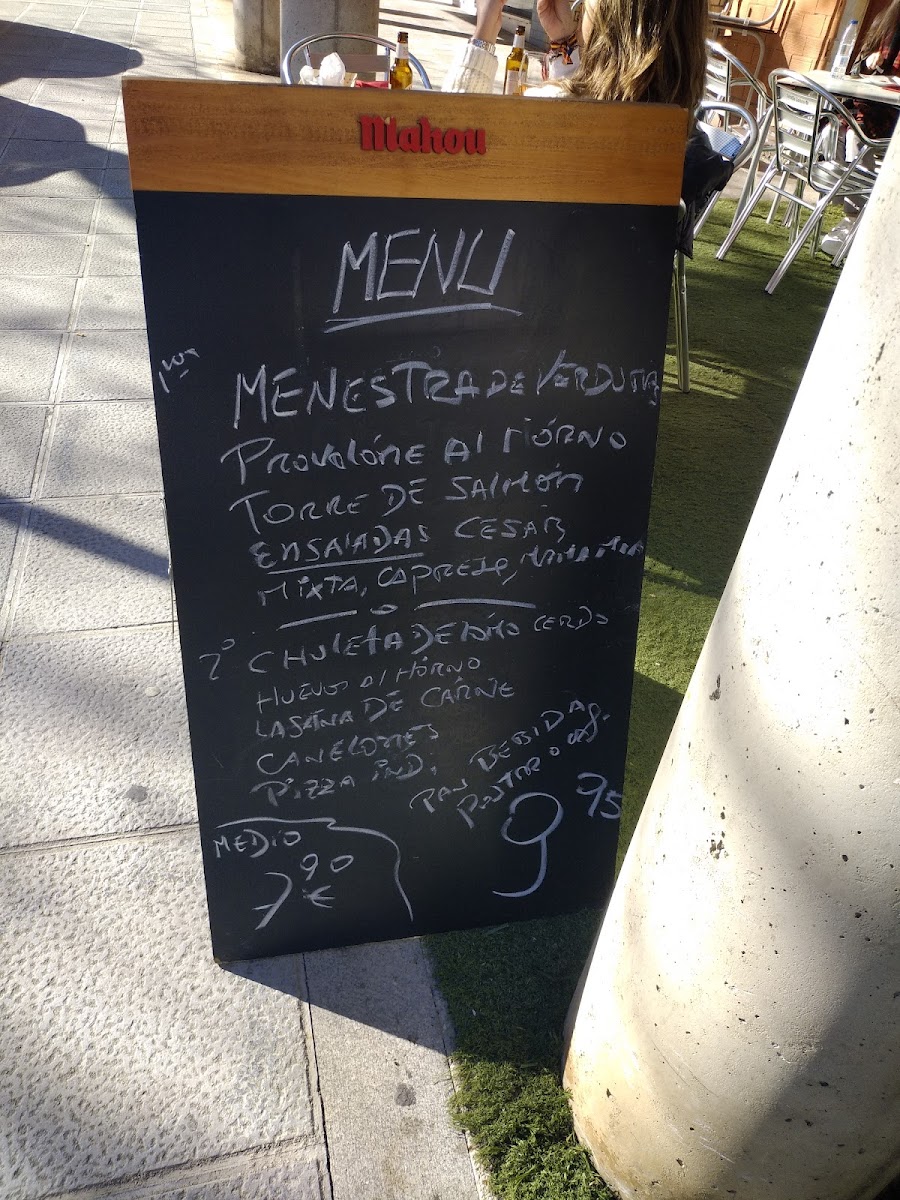 Mahou
MENU
1ros
MENESTRA DE VERDURAS
PROVOLONE AL HORNO
TORRE DE SALMÓN
ENSALADAS CESAR
MIXTA, CAPRESE,
2º CHULETA DE LOMO CERDO
HUEVOS AL HORNO
LASAÑA DE CARNE
CANELONES
PIZZA IND.
PAN BEBIDA
POSTRE O
9 95
MEDIO
7 90 €